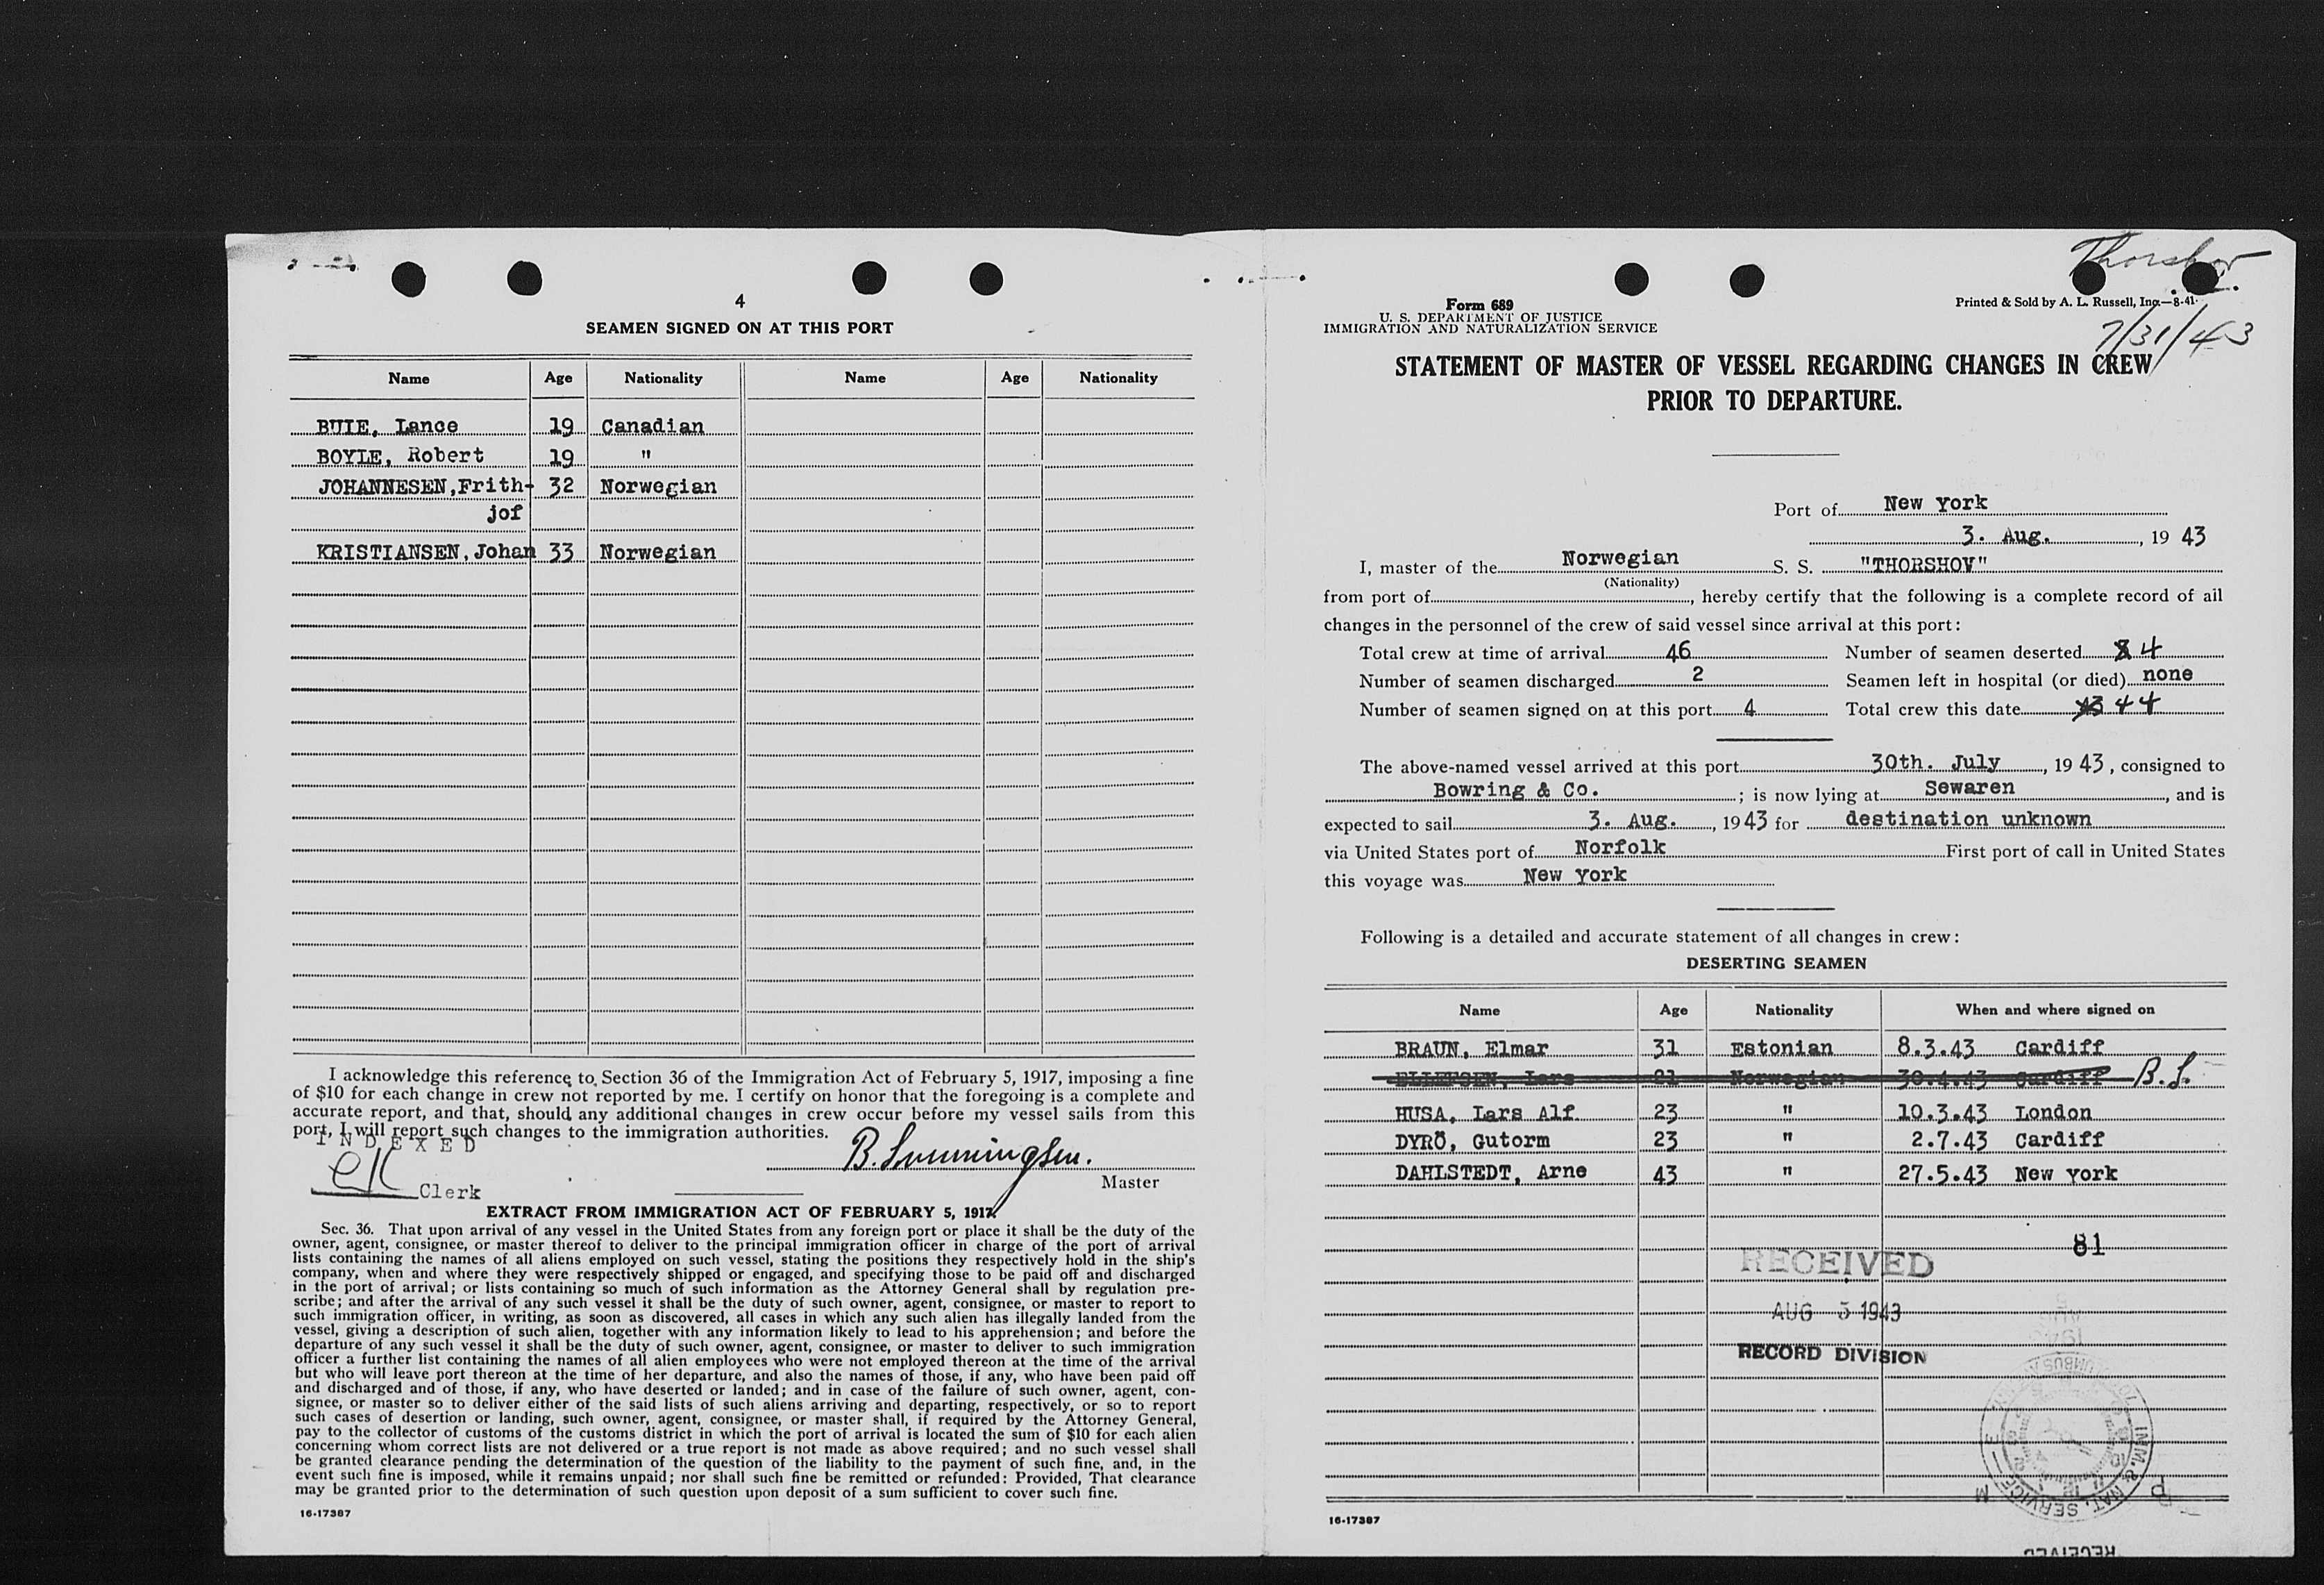 4
SEAMEN SIGNED ON AT THIS PORT
Name Age Nationality Name Age Nationality
BUIE, Lance 19 Canadian
BOYLE, Robert 19 "
JOHANNESEN, Frith- 32 Norwegian
jof
KRISTIANSEN, Johan 33 Norwegian
I acknowledge this reference to Section 36 of the Immigration Act of February 5, 1917, imposing a fine
of $10 for each change in crew not reported by me. I certify on honor that the foregoing is a complete and
accurate report, and that, should any additional changes in crew occur before my vessel sails from this
port, I will report such changes to the immigration authorities.
INDEXED
Clerk
Master
EXTRACT FROM IMMIGRATION ACT OF FEBRUARY 5, 1917
Sec. 36. That upon arrival of any vessel in the United States from any foreign port or place it shall be the duty of the
owner, agent, consignee, or master thereof to deliver to the principal immigration officer in charge of the port of arrival
lists containing the names of all aliens employed on such vessel, stating the positions they respectively hold in the ship's
company, when and where they were respectively shipped or engaged, and specifying those to be paid off and discharged
in the port of arrival; or lists containing so much of such information as the Attorney General shall by regulation pre-
scribe; and after the arrival of any such vessel it shall be the duty of such owner, agent, consignee, or master to report to
such immigration officer, in writing, as soon as discovered, all cases in which any such alien has illegally landed from the
vessel, giving a description of such alien, together with any information likely to lead to his apprehension; and before the
departure of any such vessel it shall be the duty of such owner, agent, consignee, or master to deliver to such immigration
officer a further list containing the names of all alien employees who were not employed thereon at the time of the arrival
but who will leave port thereon at the time of her departure, and also the names of those, if any, who have been paid off
and discharged and of those, if any, who have deserted or landed; and in case of the failure of such owner, agent, con-
signee, or master so to deliver either of the said lists of such aliens arriving and departing, respectively, or so to report
such cases of desertion or landing, such owner, agent, consignee, or master shall, if required by the Attorney General,
pay to the collector of customs of the customs district in which the port of arrival is located the sum of $10 for each alien
concerning whom correct lists are not delivered or a true report is not made as above required; and no such vessel shall
be granted clearance pending the determination of the question of the liability to the payment of such fine, and, in the
event such fine is imposed, while it remains unpaid; nor shall such fine be remitted or refunded: Provided, That clearance
may be granted prior to the determination of such question upon deposit of a sum sufficient to cover such fine.
16-17387
Thorshov
7/31/43
Form 689
U. S. DEPARTMENT OF JUSTICE
IMMIGRATION AND NATURALIZATION SERVICE
Printed & Sold by A. L. Russell, Inc.—8-41
STATEMENT OF MASTER OF VESSEL REGARDING CHANGES IN CREW
PRIOR TO DEPARTURE.
Port of New York
3. Aug., 19 43
I, master of the Norwegian S. S. "THORSHOV"
(Nationality)
from port of, hereby certify that the following is a complete record of all
changes in the personnel of the crew of said vessel since arrival at this port:
Total crew at time of arrival 46 Number of seamen deserted 4
Number of seamen discharged 2 Seamen left in hospital (or died) none
Number of seamen signed on at this port 4 Total crew this date 44
The above-named vessel arrived at this port 30th. July, 19 43, consigned to
Bowring & Co.; is now lying at Sewaren, and is
expected to sail 3. Aug., 19 43 for destination unknown
via United States port of Norfolk First port of call in United States
this voyage was New York
Following is a detailed and accurate statement of all changes in crew:
DESERTING SEAMEN
Name Age Nationality When and where signed on
BRAUN, Elmar 31 Estonian 8.3.43 Cardiff
Lars 21 Norwegian 30.4.43 Cardiff B.S.
HUSA, Lars Alf 23 " 10.3.43 London
DYRÖ, Gutorm 23 " 2.7.43 Cardiff
DAHLSTEDT, Arne 43 " 27.5.43 New York
81
RECEIVED
AUG 5 1943
RECORD DIVISION
IMM. & NAT. SERVICE
16-17387
RECEIVED